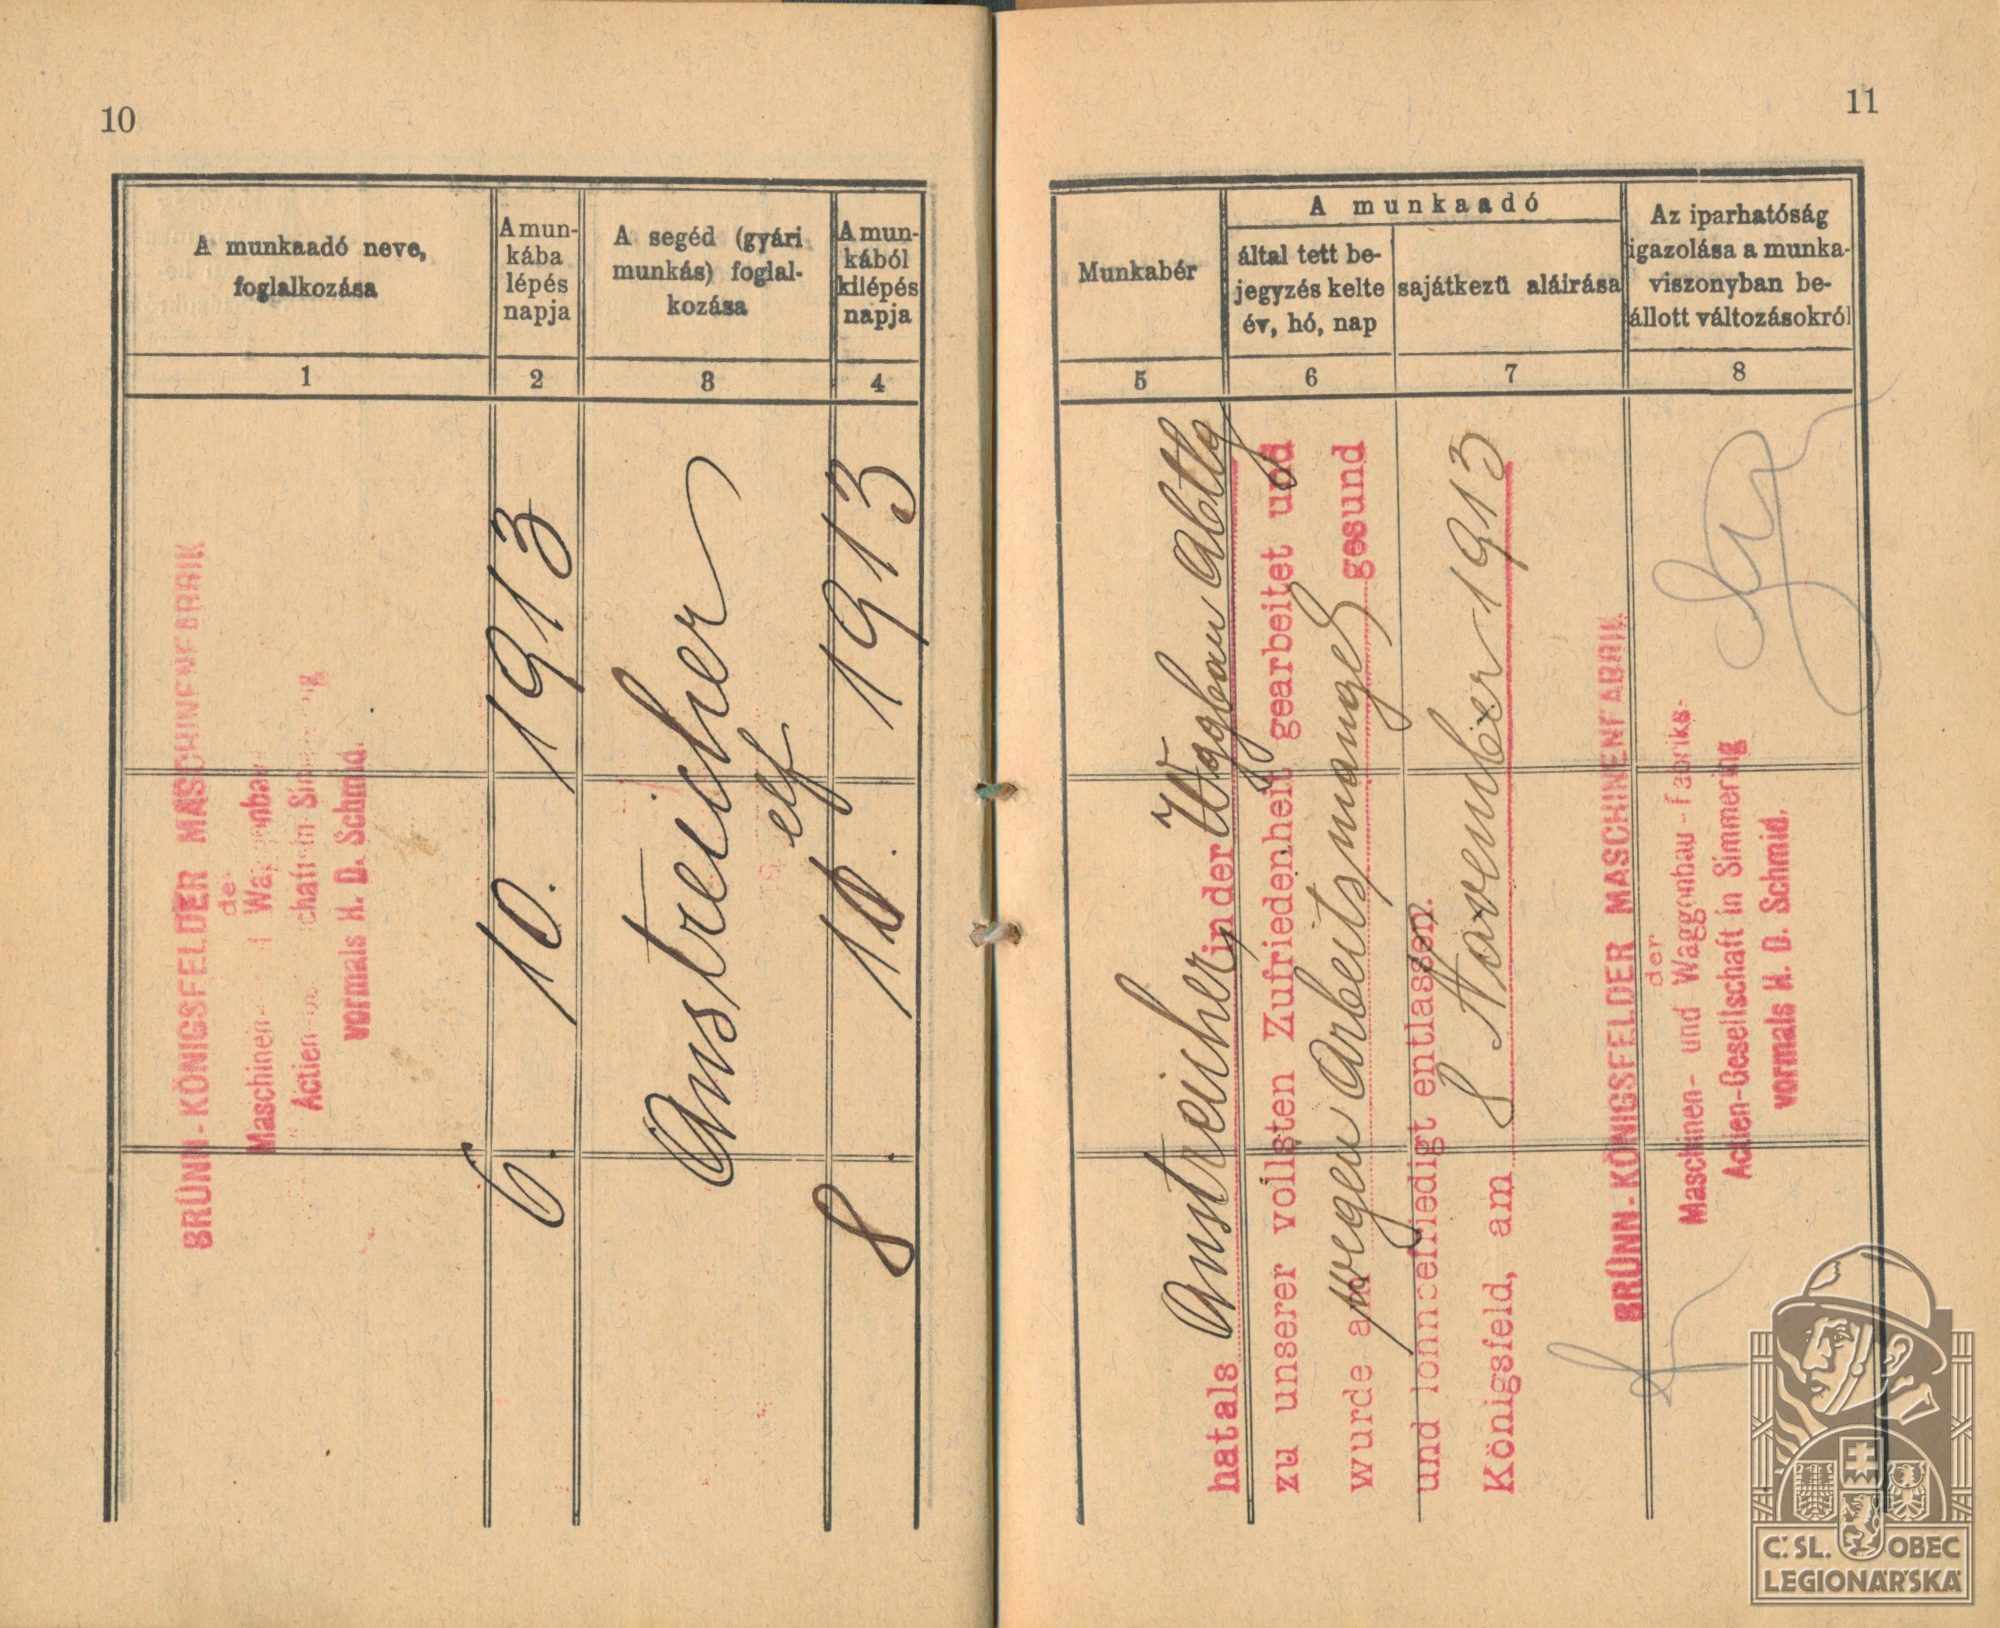 10
A munkaadó neve,
foglalkozása
A mun-
kába
lépés
napja
A segéd (gyári
munkás) foglal-
kozása
A mun-
kából
kilépés
napja
1
2
3
4
BRÜNN-KÖNIGSFELDER MASCHINENFABRIK
der
Maschinen- und Waggonbau-
Actien-Gesellschaft in Simmering
vormals H. D. Schmid.
6. 10. 1913
Anstreicher
elf
8. 10. 1913
11
Munkabér
A munkaadó
által tett be-
jegyzés kelte
év, hó, nap
sajátkezü aláirása
Az iparhatóság
igazolása a munka-
viszonyban be-
állott változásokról
5
6
7
8
hat als Anstreicher, in der Wagbau Abtlg
zu unserer vollsten Zufriedenheit gearbeitet und
wurde am wegen Arbeitsmangel gesund
und lohnbefriedigt entlassen.
Königsfeld, am 8 November 1913
BRÜNN-KÖNIGSFELDER MASCHINENFABRIK
der
Maschinen- und Waggonbau-Fabriks-
Actien-Gesellschaft in Simmering
vormals H. D. Schmid.
Č.SL. OBEC
LEGIONÁŘSKÁ